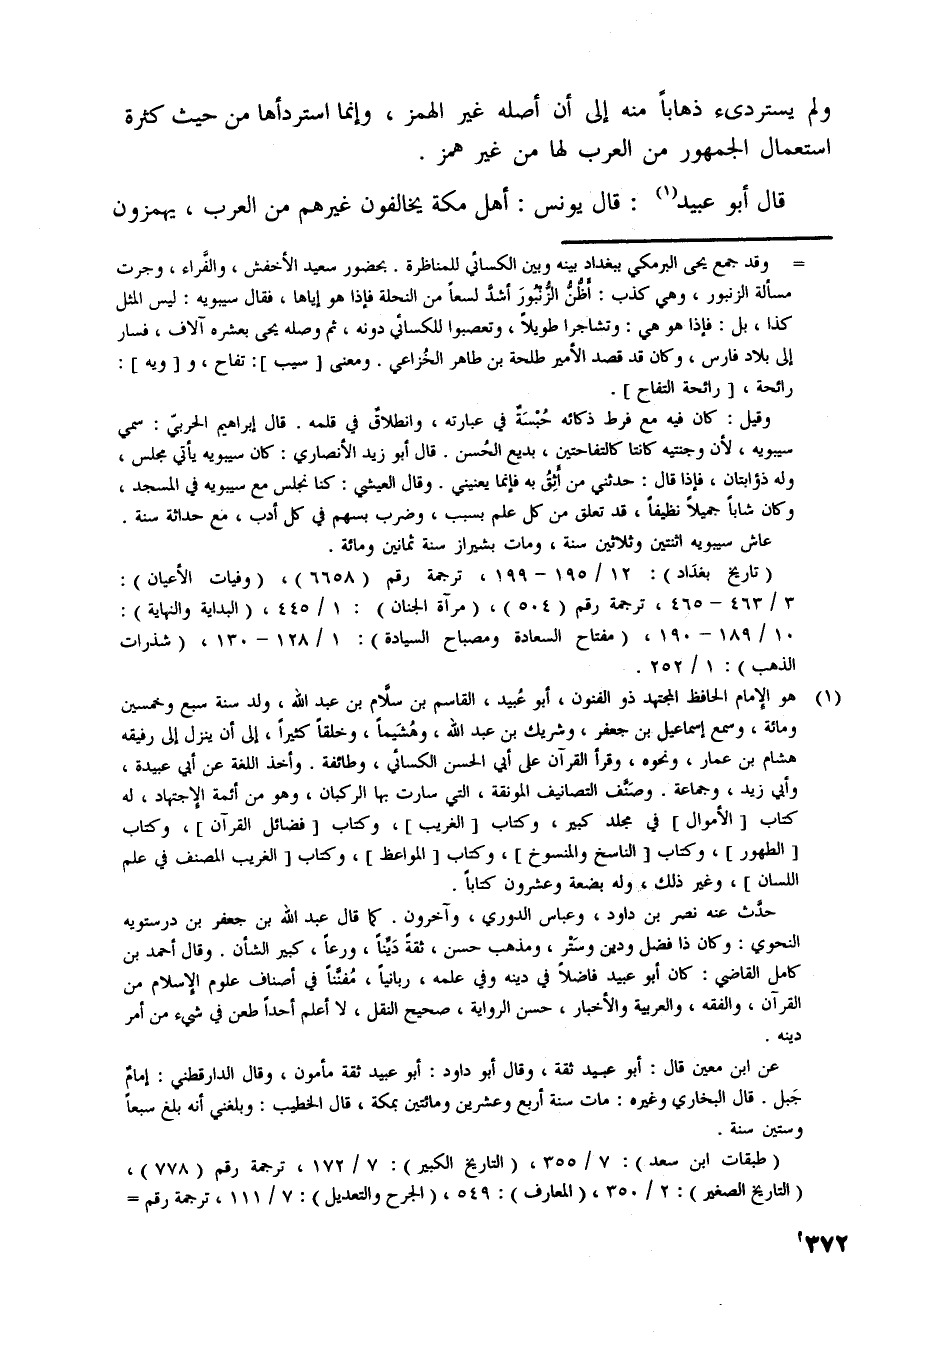 ولم يستردىء ذهاباً منه إلى أن أصله غير الهمز ، وإنما استردأها من حيث كثرة
استعمال الجمهور من العرب لها من غير همز .
قال أبو عبيد(١) : قال يونس : أهل مكة يخالفون غيرهم من العرب ، يهمزون
= وقد جمع يحى البرمكي ببغداد بينه وبين الكسائي للمناظرة . بحضور سعيد الأخفش ، والفَّراء ، وجرت
مسألة الزنبور ، وهي كذب : أَظُنُّ الزُّنْبُورَ أشدَّ لسعاً من النحلة فإذا هو إياها ، فقال سيبويه : ليس المثل
كذا ، بل : فإذا هو هي : وتشاجرا طويلاً ، وتعصبوا للكسائي دونه ، ثم وصله يحى بعشره آلاف ، فسار
إلى بلاد فارس ، وكان قد قصد الأمير طلحة بن طاهر الخُزاعي . ومعنى [ سيب ]: تفاح ، و [ ويه ] :
رائحة ، [ رائحة التفاح ] .
وقيل : كان فيه مع فرط ذكائه حُبْسَةٌ في عبارته ، وانطلاقٌ في قلمه . قال إبراهيم الحربيّ : سمي
سيبويه ، لأن وجنتيه كانتا كالتفاحتين ، بديع الحُسن . قال أبو زيد الأنصاري : كان سيبويه يأتي مجلس ،
وله ذؤابتان ، فإذا قال : حدثني من أَثِقُ به فإنما يعنيني . وقال العيشي : كنا نجلس مع سيبويه في المسجد ،
وكان شاباً جميلاً نظيفاً ، قد تعلق من كل علم بسبب ، وضرب بسهم في كل أدب ، مع حداثة سنة .
عاش سيبويه اثنتين وثلاثين سنة ، ومات بشيراز سنة ثمانين ومائة .
( تاريخ بغداد ) : ١٢ / ١٩٥ – ١٩٩ ، ترجمة رقم ( ٦٦٥٨ ) ، ( وفيات الأعيان ) :
٣ / ٤٦٣ – ٤٦٥ ، ترجمة رقم ( ٥٠٤ ) ، ( مرآة الجنان ) : ١ / ٤٤٥ ، ( البداية والنهاية ) :
١٠ / ١٨٩ – ١٩٠ ، ( مفتاح السعادة ومصباح السيادة ) : ١ / ١٢٨ – ١٣٠ ، ( شذرات
الذهب ) : ١ / ٢٥٢ .
(١) هو الإمام الحافظ المجتهد ذو الفنون ، أبو عُبيد ، القاسم بن سلَّام بن عبد الله ، ولد سنة سبع وخمسين
ومائة ، وسمع إسماعيل بن جعفر ، وشريك بن عبد الله ، وهُشَيماً ، وخلقاً كثيراً ، إلى أن ينزل إلى رفيقه
هشام بن عمار ، ونحوه ، وقرأ القرآن على أبي الحسن الكسائي ، وطائفة . وأخذ اللغة عن أبي عبيدة ،
وأبي زيد ، وجماعة . وصنَّف التصانيف المونقة ، التي سارت بها الركبان ، وهو من أئمة الإجتهاد ، له
كتاب [ الأموال ] في مجلد كبير ، وكتاب [ الغريب ] ، وكتاب [ فضائل القرآن ] ، وكتاب
[ الطهور ] ، وكتاب [ الناسخ والمنسوخ ] ، وكتاب [ المواعظ ] ، وكتاب [ الغريب المصنف في علم
اللسان ] ، وغير ذلك ، وله بضعة وعشرون كتاباً .
حدَّث عنه نصر بن داود ، وعباس الدوري ، وآخرون . كما قال عبد الله بن جعفر بن درستويه
النحوي : وكان ذا فضل ودين وسَتْر ، ومذهب حسن ، ثقةً دَيِّناً ، ورعاً ، كبير الشأن . وقال أحمد بن
كامل القاضي : كان أبو عبيد فاضلاً في دينه وفي علمه ، ربانياً ، مُفنَّناً في أصناف علوم الإسلام من
القرآن ، والفقه ، والعربية والأخبار ، حسن الرواية ، صحيح النقل ، لا أعلم أحداً طعن في شيء من أمر
دينه .
عن ابن معين قال : أبو عبيد ثقة ، وقال أبو داود : أبو عبيد ثقة مأمون ، وقال الدارقطني : إمامٌ
جَبل . قال البخاري وغيره : مات سنة أربع وعشرين ومائتين بمكة ، قال الخطيب : وبلغني أنه بلغ سبعاً
وستين سنة .
( طبقات ابن سعد ) : ٧ / ٣٥٥ ، ( التاريخ الكبير ) : ٧ / ١٧٢ ، ترجمة رقم ( ٧٧٨ ) ،
( التاريخ الصغير ) : ٢ / ٣٥٠ ، ( المعارف ) : ٥٤٩ ، ( الجرح والتعديل ) : ٧ / ١١١ ، ترجمة رقم =
٣٧٢